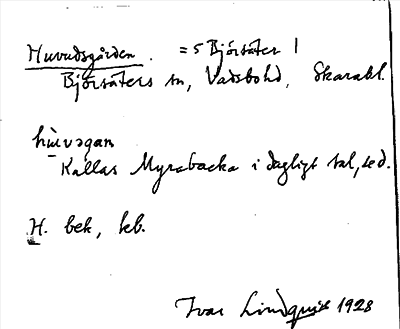 Huvudsgården. = 5 Björsäter 1
Björsäters sn, Vadsbo hd, Skarabl.
hùvəgaɳ
Kallas Myrabacka i dagligt tal, se d.
H. bek, kb.
Ivar Lindquist 1928